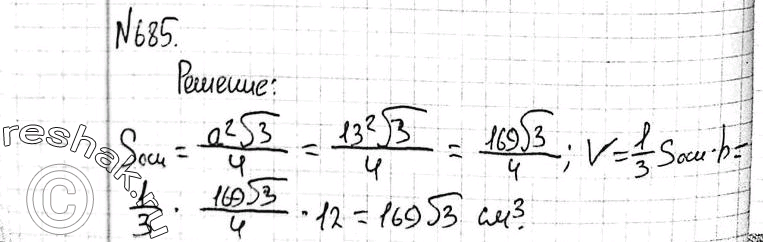 N685.
Решение:
Sосн = a²√3/4 = 13²√3/4 = 169√3/4; V = 1/3 Sосн·h =
1/3 · 169√3/4 · 12 = 169√3 см³.
reshak.ru
©